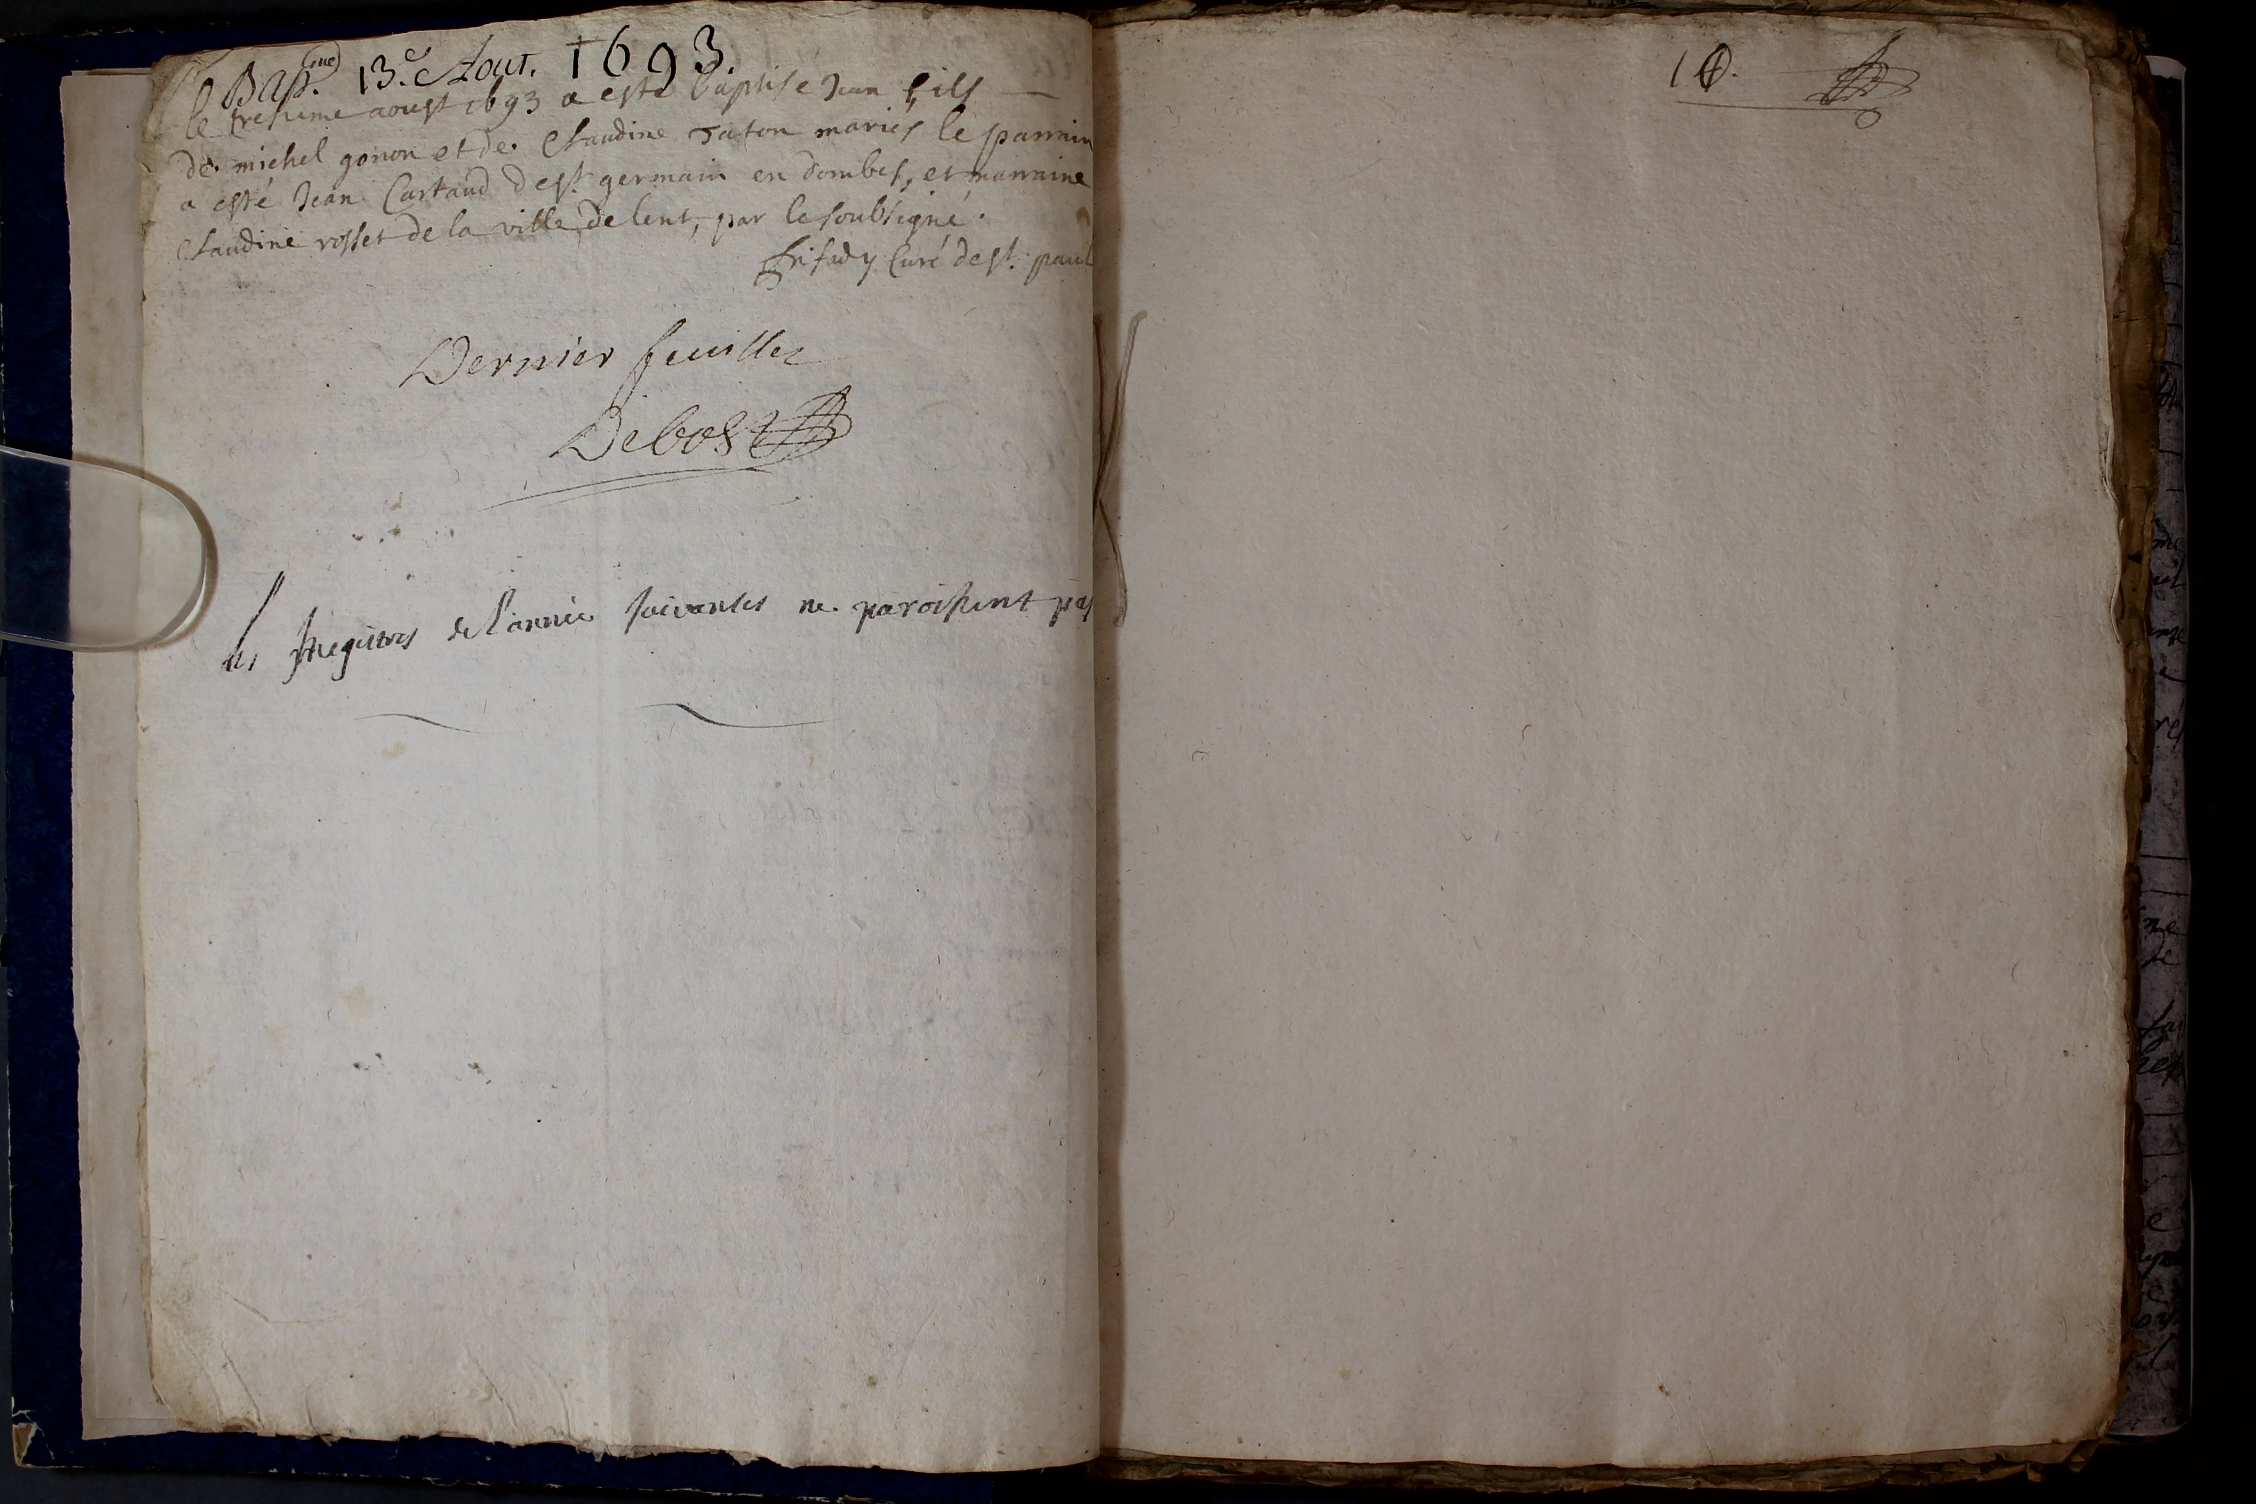 Bap. 13.e Aout. 1693.
le tresieme aoust 1693 a esté baptise Jean fils
de. michel gonon et de. Claudine Taton mariés le parrain
a esté Jean Cartaud de st. germain en dombes, et marraine
Claudine rosset de la ville de lent, par le soubsigné.
Curé de st. paul
Dernier feuillet
Debost
les Registres de l'année suivantes ne. paroissent pas
10.